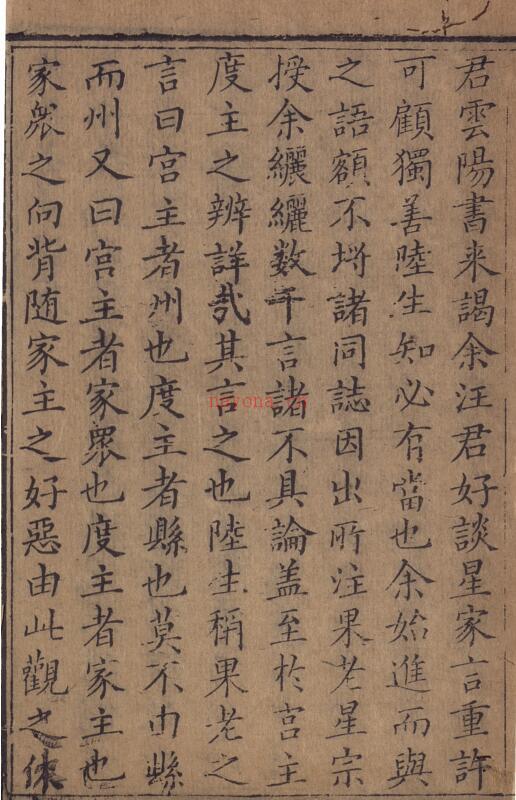 君雲陽書来謁余汪君好談星家言重許
可顧獨善陸生知必有當也余始進而與
之語額不埓諸同誌因出所注果老星宗
授余纚纚数千言諸不具論盖至於宮主
度主之辨詳哉其言之也陸生稱果老之
言曰宮主者州也度主者縣也莫不由縣
而州又曰宮主者家衆也度主者家主也
家衆之向背随家主之好惡由此觀之休